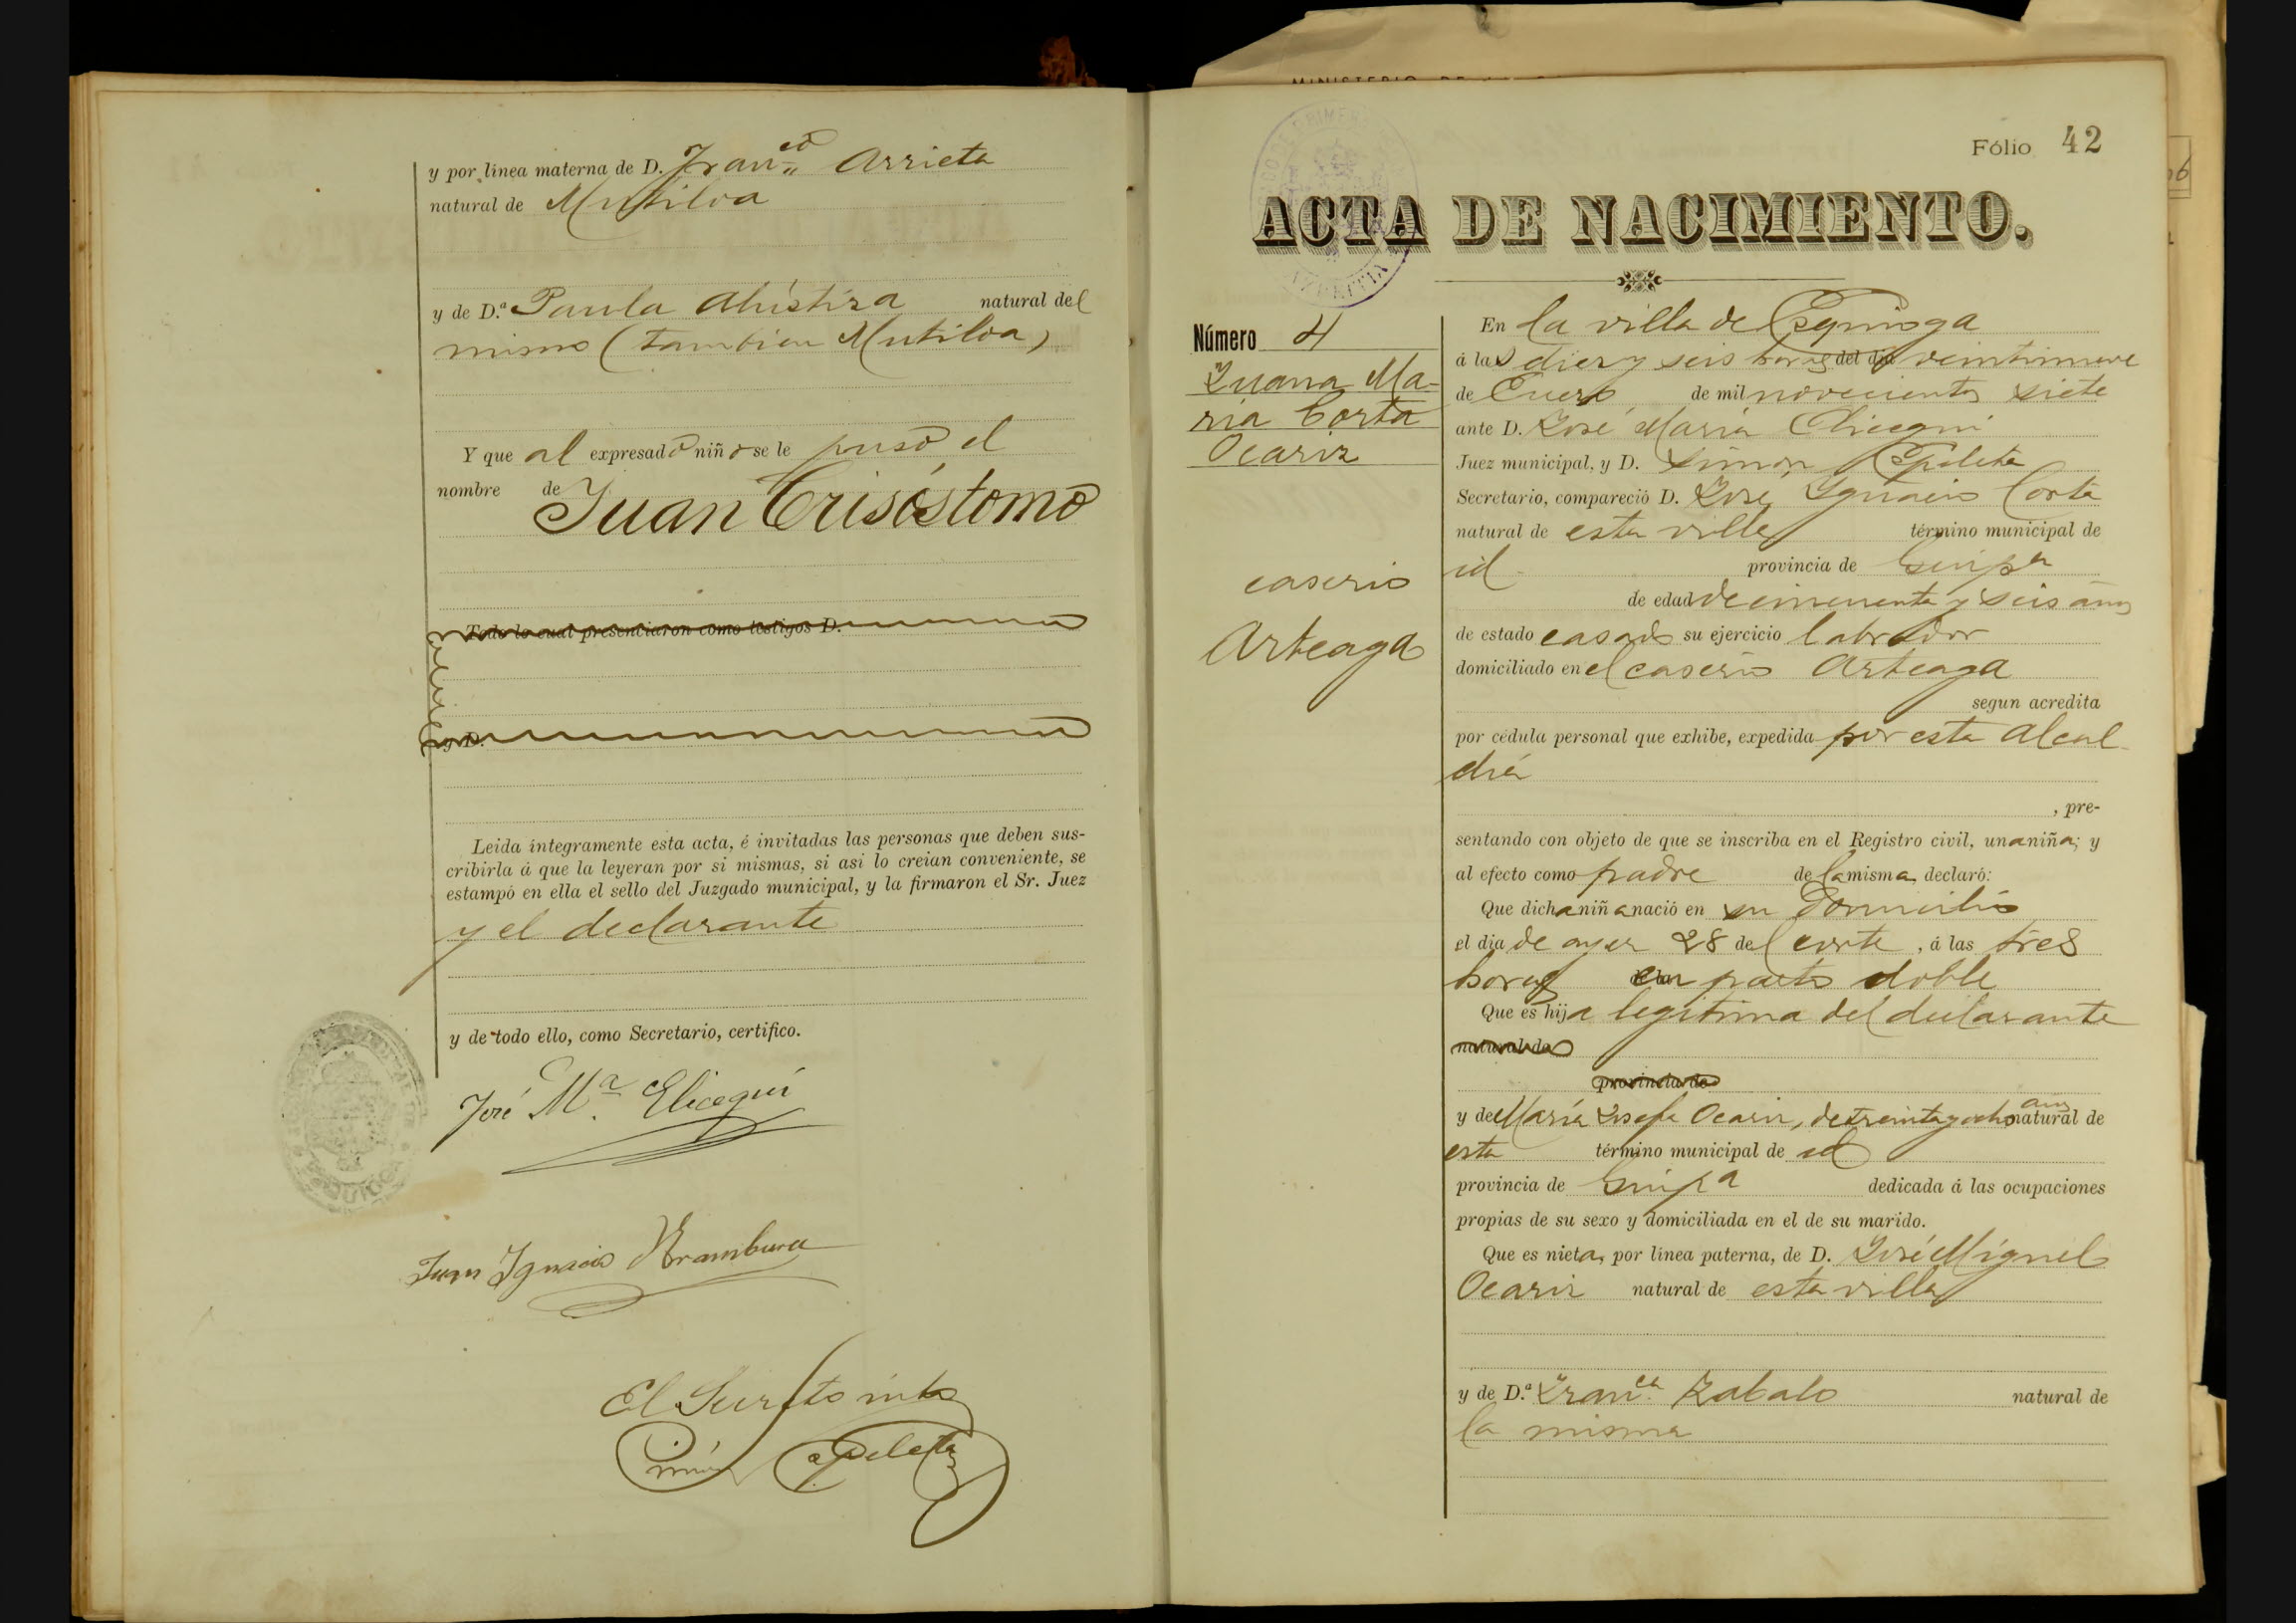 y por línea materna de D. Fran.co Arrieta
natural de Mutiloa
y de D.ª Paula Ahístiza natural del
mismo (tambien Mutiloa)
Y que al expresado niño se le puso el
nombre de
Juan Crisóstomo
Todo lo cual presenciaron como testigos D.
y D.
Leida íntegramente esta acta, é invitadas las personas que deben sus-
cribirla á que la leyeran por si mismas, si asi lo creian conveniente, se
estampó en ella el sello del Juzgado municipal, y la firmaron el Sr. Juez
y el declarante
y de todo ello, como Secretario, certifico.
José M.ª Elicegui
Juan Ignacio Aramburu
El Secret.to int.o
Simón Apeleta
MINISTERIO DE
Fólio 42
ACTA DE NACIMIENTO.
Número 4
Juana Ma-
ria Corta
Ocariz
caserio
Arteaga
En la villa de Ezquioga
á las diez y seis horas del dia veintinueve
de Enero de mil novecientos siete
ante D. José María Elicegui
Juez municipal, y D. Simón Apeleta
Secretario, compareció D. José Ignacio Corta
natural de esta villa término municipal de
id provincia de Guip.a
de edad de cincuenta y seis años
de estado casado su ejercicio labrador
domiciliado en el caserio Arteaga
segun acredita
por cédula personal que exhibe, expedida por esta Alcal-
día
, pre-
sentando con objeto de que se inscriba en el Registro civil, una niña; y
al efecto como padre de la misma, declaró:
Que dicha niña nació en su domicilio
el dia de ayer 28 del corrte, á las tres
horas en parto doble
Que es hija legitima del declarante
natural de
provincia de
y de María Josefa Ocariz, de treinta y ocho años natural de
esta término municipal de id
provincia de Guip.a dedicada á las ocupaciones
propias de su sexo y domiciliada en el de su marido.
Que es nieta, por línea paterna, de D. José Miguel
Ocariz natural de esta villa
y de D.ª Fran.ca Zabalo natural de
la misma